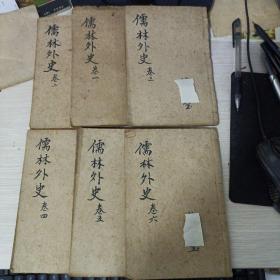 儒林外史
卷二
儒林外史
卷一
儒林外史
卷三
儒林外史
卷四
儒林外史
卷五
儒林外史
卷六